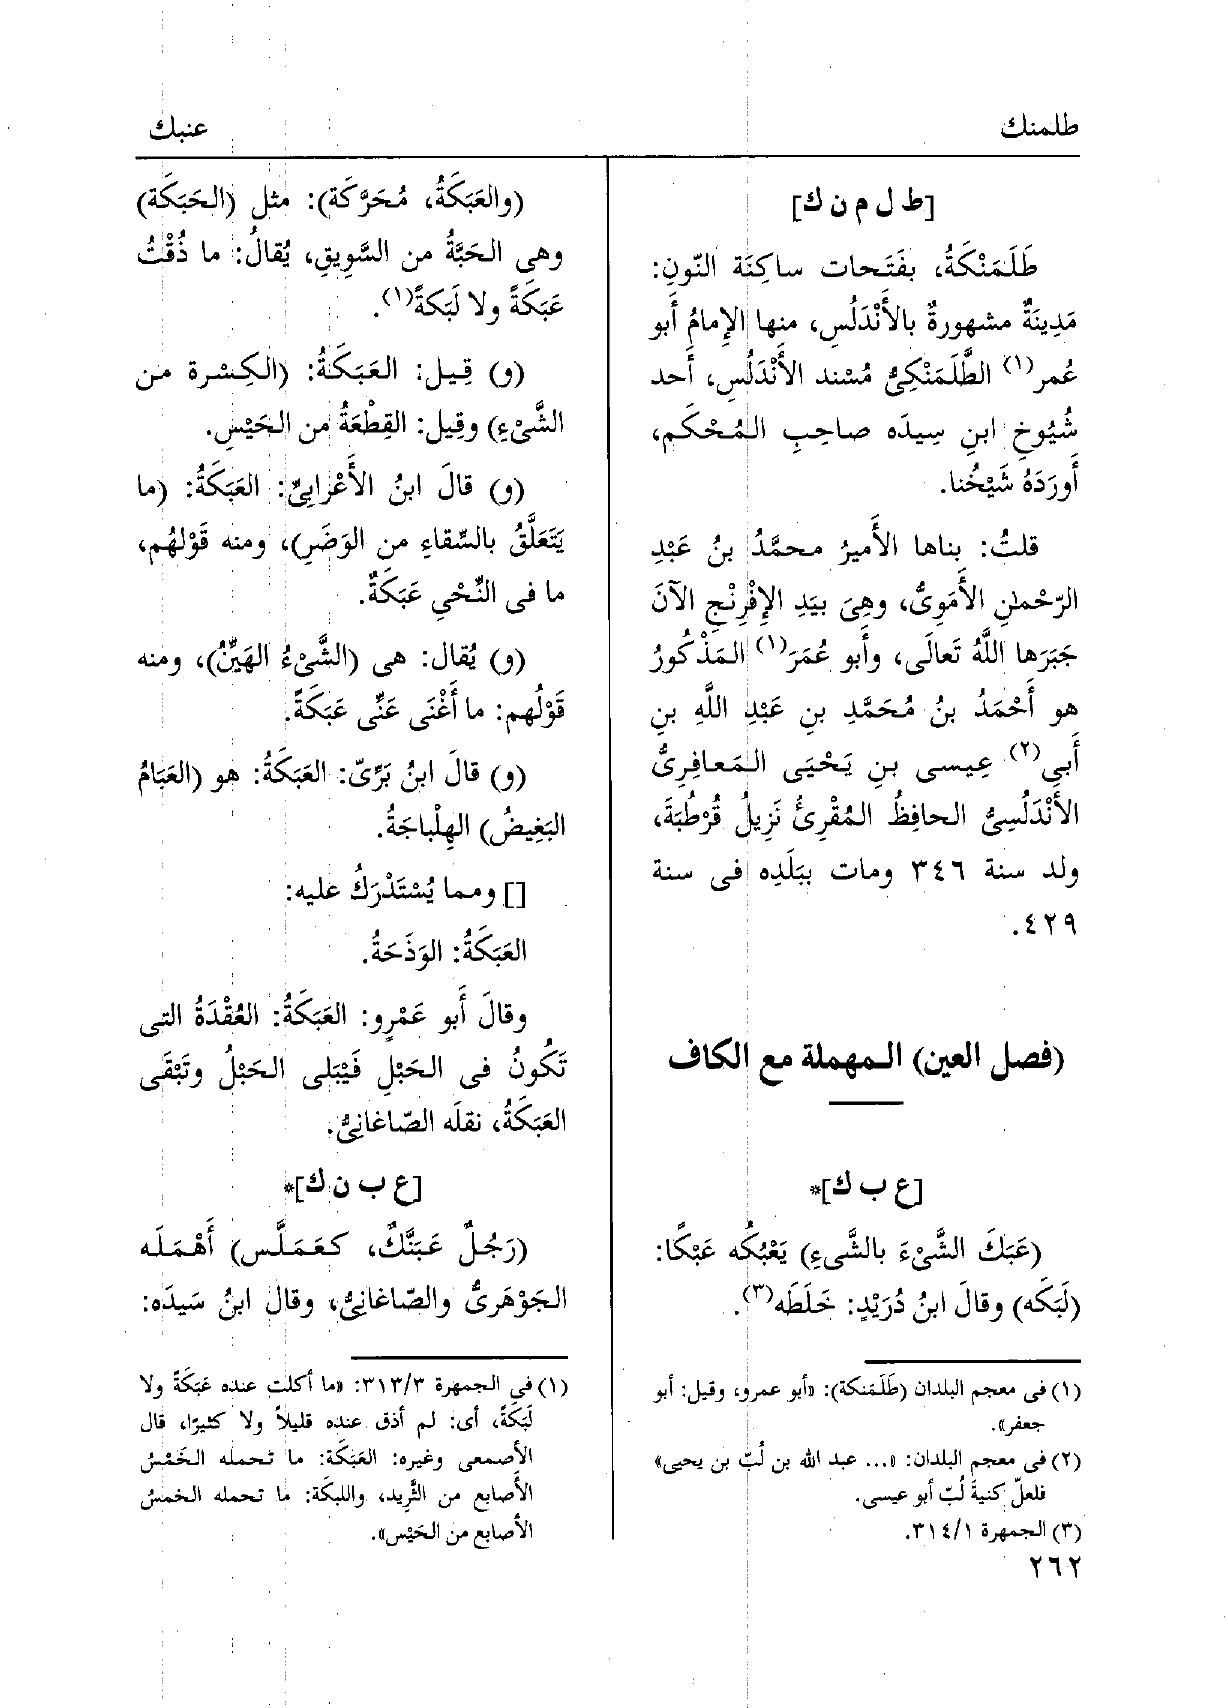 طلمنك
عنبك
[ط ل م ن ك]
طَلَمَنْكَةُ، بفَتَحات ساكِنَة النّونِ:
مَدِينَةٌ مشهورةٌ بالأَنْدَلُسِ، منها الإمامُ أَبو
عُمر(١) الطَّلَمَنْكِىُّ مُسْند الأَنْدَلُسِ، أَحد
شُيُوخِ ابنِ سِيدَه صاحِبِ المُحْكَم،
أَورَدَهُ شَيْخُنا.
قلتُ: بناها الأَميرُ محمَّدُ بنُ عَبْدِ
الرّحْمٰنِ الأُمَوِىُّ، وهِىَ بيَدِ الإِفْرِنْجِ الآنَ
جَبَرَها اللَّهُ تَعالَى، وأَبو عُمَرَ(١) المَذْكُورُ
هو أَحْمَدُ بنُ مُحَمَّدِ بنِ عَبْدِ اللَّهِ بنِ
أَبي(٢) عِيسى بنِ يَحْيَى المَعافِرِىُّ
الأَنْدَلُسِىُّ الحافِظُ المُقْرِئُ نَزِيلُ قُرْطُبَةَ،
ولد سنة ٣٤٦ ومات ببَلَدِه فى سنة
٤٢٩.
(فصل العين) المهملة مع الكاف
[ع ب ك]*
(عَبَكَ الشَّىْءَ بالشَّىءِ) يَعْبُكُه عَبْكًا:
(لَبَكَه) وقالَ ابنُ دُرَيْدٍ: خَلَطَه(٣).
(١) فى معجم البلدان (طَلَمَنكة): «أبو عمرو، وقيل: أبو
جعفر».
(٢) فى معجم البلدان: «... عبد الله بن لُبّ بن يحيى»
فلعلّ كنيةَ لُبّ أبو عيسى.
(٣) الجمهرة ٣١٤/١.
٢٦٢
(والعَبَكَةُ، مُحَرَّكَة): مثل (الحَبَكَة)
وهى الحَبَّةُ من السَّوِيقِ، يُقالُ: ما ذُقْتُ
عَبَكَةً ولا لَبَكةً(١).
(و) قِيل: العَبَكَةُ: (الكِسْرة من
الشَّىْءِ) وقِيل: القِطْعَةُ من الحَيْسِ.
(و) قالَ ابنُ الأَعْرابِىِّ: العَبَكَةُ: (ما
يَتَعَلَّقُ بالسِّقاءِ من الوَضَرِ)، ومنه قَوْلهُم،
ما فى النِّحْيِ عَبَكَةٌ.
(و) يُقال: هى (الشَّىْءُ الهَيِّنُ)، ومنه
قَوْلُهم: ما أَغْنَى عَنِّى عَبَكَةً.
(و) قالَ ابنُ بَرِّىّ: العَبَكَةُ: هو (العَبَامُ
البَغِيضُ) الهِلْباجَةُ.
[] ومما يُسْتَدْرَكُ عليه:
العَبَكَةُ: الوَذَحَةُ.
وقالَ أَبو عَمْرٍو: العَبَكَةُ: العُقْدَةُ التى
تَكُونُ فى الحَبْلِ فَيْبَلى الحَبْلُ وتَبْقَى
العَبَكَةُ، نقلَه الصّاغانِىُّ.
[ع ب ن ك]*
(رَجُلٌ عَبَنَّكٌ، كعَمَلَّس) أَهْمَلَه
الجَوْهَرِىُّ والصّاغانِىُّ، وقال ابنُ سَيدَه:
(١) فى الجمهرة ٣١٣/٣: «ما أكلت عنده عَبَكَةً ولا
لَبَكَةً، أى: لم أذق عنده قليلاً ولا كثيرًا، قال
الأصمعى وغيره: العَبَكَة: ما تحمله الخَمْسُ
الأصابع من الثَّرِيد، واللبكة: ما تحمله الخمسُ
الأصابع من الحَيْس».